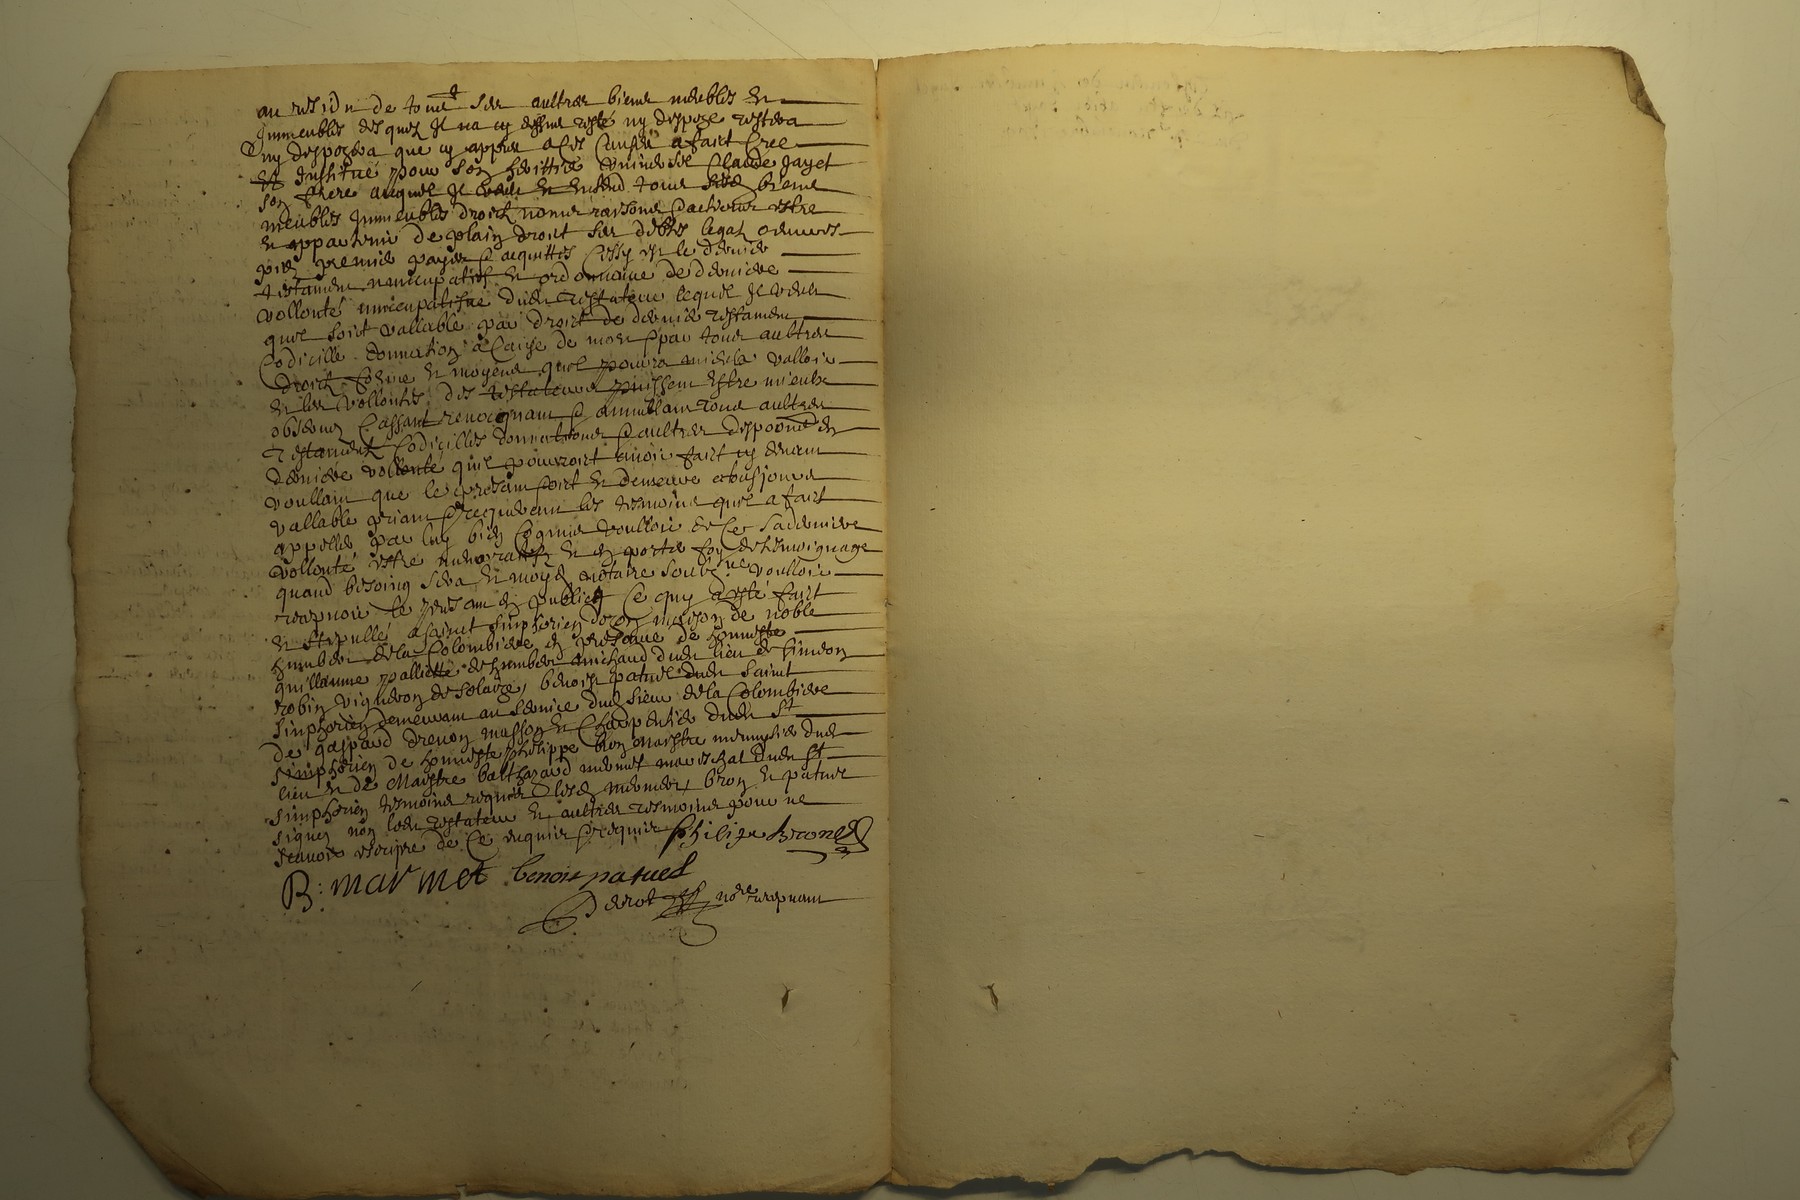 au residu de tous ses aultres biens meubles et
Immeubles desquelz Il na cy dessus testé ny dispozé testera
ny dispozera que cy appres a ses causes a faict cree
et Institué pour son herittier universel Claude Jayet
son frere auquel Il veult et entend tous sesd biens
meubles Immeubles droictz noms raisons & actions estre
et appartenir de plain droict ses debtes legatz oeuvres
pies premier payes & acquittés Cessy est le dernier
testament nuncupatif et ordonnance de derniere
vollonté nuncupatifve dudt testateur lequel Il veult
quil soict vallable par droict de dernier testament
Codicille donnation a Cause de mort & par tous aultres
droictz forme et moyens quil pourra mieulx valloir
et les vollontés des testateurs puissent estre mieulx
observés Cassant revocquant & annullant tous aultres
testamentz Codicilles donnations & aultres dispoons de
derniere vollonté quil pourroict avoir faict cy devant
voullant que le present soict et demeure a tousjours
vallable priant & requerant les tesmoins quil a faict
appeller par luy bien Cogneus voulloir de Ceste sa derniere
vollonté estre memoratifz et en porter foy de tesmoignage
quand besoing sera et moyd notaire soubzne voulloir
recepvoir le present en publicq Ce quy a esté faict
et stipullé a sainct simphorien dozon maison de noble
humbert de la Colombiere en presence de honneste
guillaume palliette de humbert michaud dudt lieu de simeon
robin vigneron de solaize, benoist patuel dudt sainct
simphorien demeurant au service dud sieur de la Colombiere
de gaspard drevon masson et Charpentier dudt St
simphorien de honneste philippe bron maistre menuysier dudt
lieu et de Maistre balthazard mermet mareschal dudt St
simphorien tesmoins requis lesd mermet, bron et patuel
signes non ledt testateur et aultres tesmoins pour ne
scavoir escripre de Ce enquis & requis philipe Bron
B: marmet benoist patuel
Derot nore recepvant